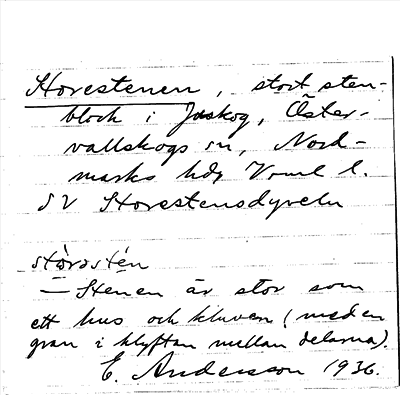 Storestenen, stort sten-
block i Joskog, Öster-
vallskogs sn, Nord-
marks hd, Vrml l.
SV Storestensdyveln
stòrəstén
— Stenen är stor som
ett hus och kluven (med en
gran i klyftan mellan delarna).
E. Andersson 1936.